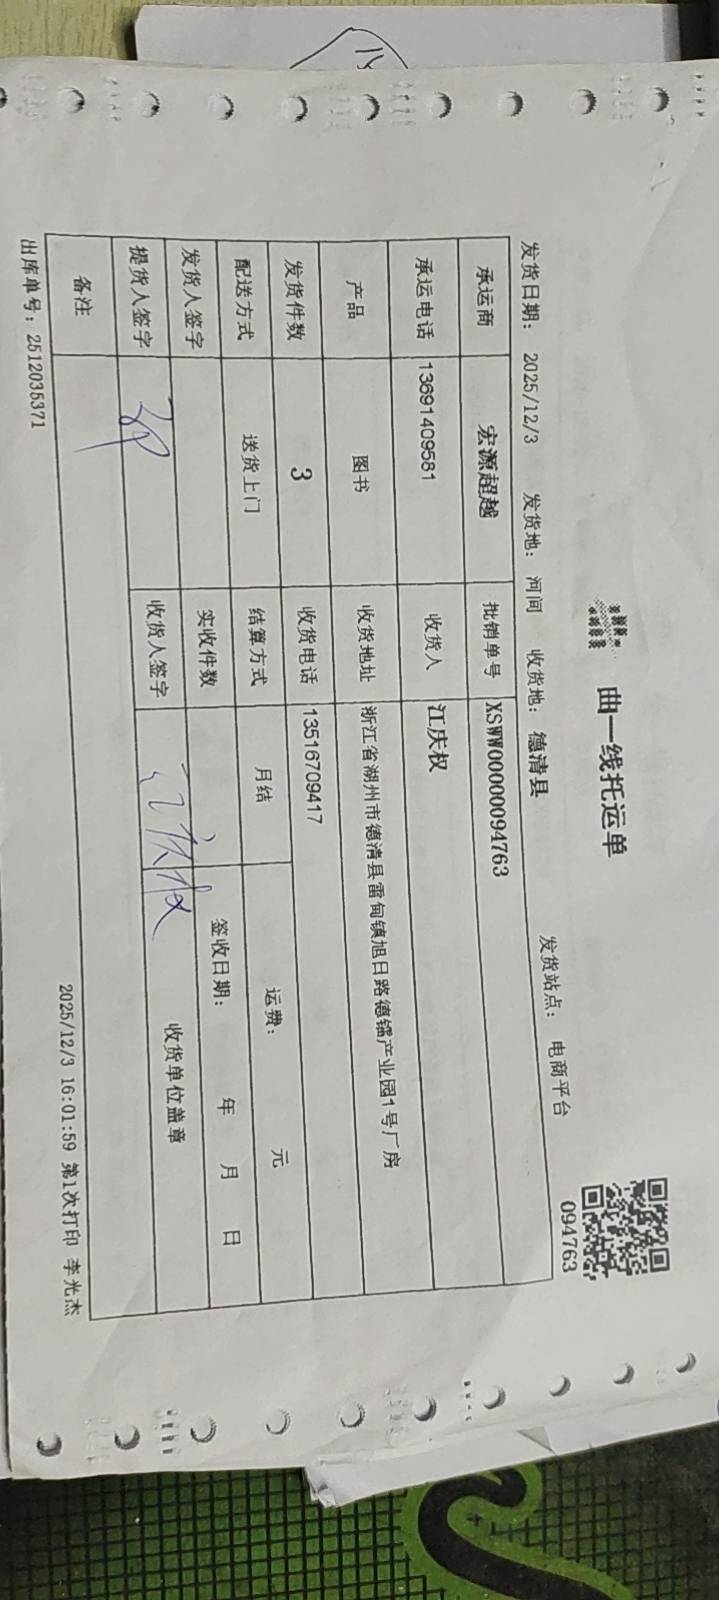 曲一线托运单
094763
发货日期： 2025/12/3 发货地： 河间 收货地： 德清县 发货站点： 电商平台
承运商 宏源超越 批销单号 XSWW00000094763
承运电话 13691409581 收货人 江庆权
产品 图书 收货地址 浙江省湖州市德清县雷甸镇旭日路德镭产业园1号厂房
发货件数 3 收货电话 13516709417
配送方式 送货上门 结算方式 月结 运费： 元
发货人签字 实收件数 签收日期： 年 月 日
提货人签字 收货人签字 江庆权 收货单位盖章
备注
出库单号：2512035371 2025/12/3 16:01:59 第1次打印 李光杰